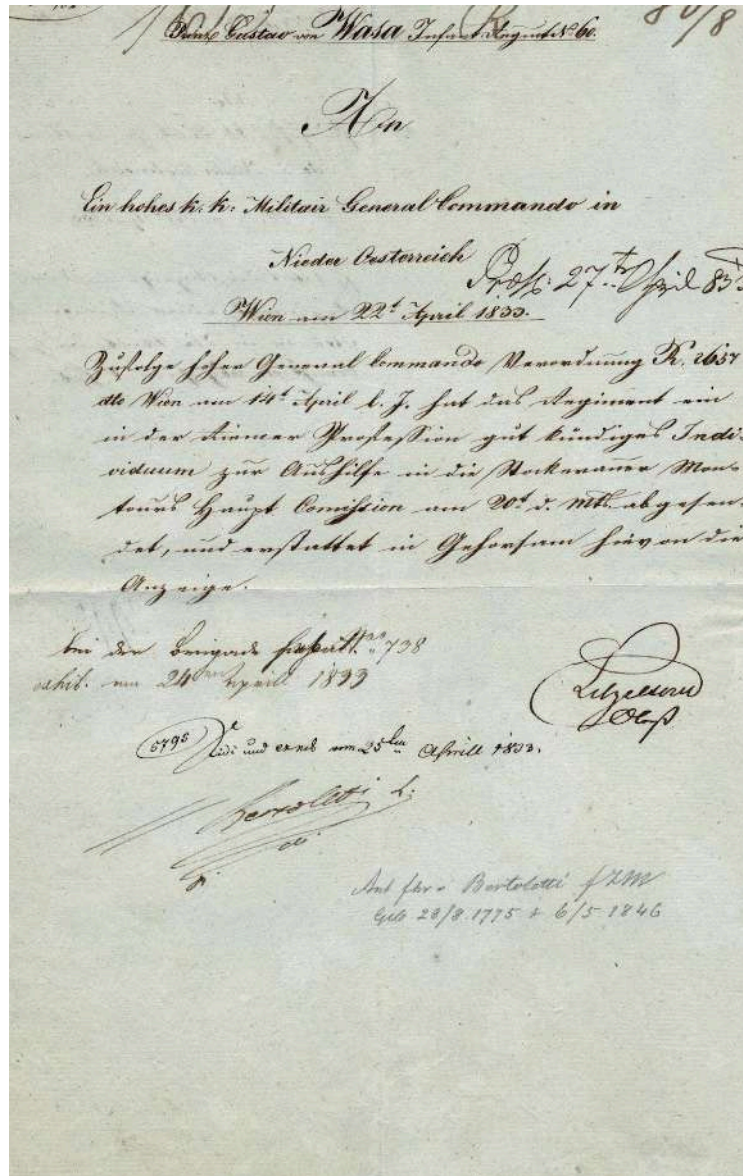 Prinz Gustav von Wasa Infant. Regiment No 60.
80/8
An
Ein hohes k: k: Militair General Commando in
Nieder Oesterreich
27t April 833
Wien am 22t April 1833.
Zufolge hoher General Commando Verordnung K. 2657
dto Wien am 14t April l. J. hat das Regiment ein
in der Riemer Profession gut kündiges Indi-
viduum zur Aushilfe in die Stockerauer Mon-
tours Haupt Comission am 20t d. Mts. abgesen-
det, und erstattet in Gehorsam hievon die
Anzeige.
bei der Brigade 738
exhib. am 24ten Aprill 1833
Obst
5795 Vidi und exhib am 25ten Aprill 1833.
Bartolotti
Ant fhr v Bartolotti fzm
Geb 28/8 1775 + 6/5 1846